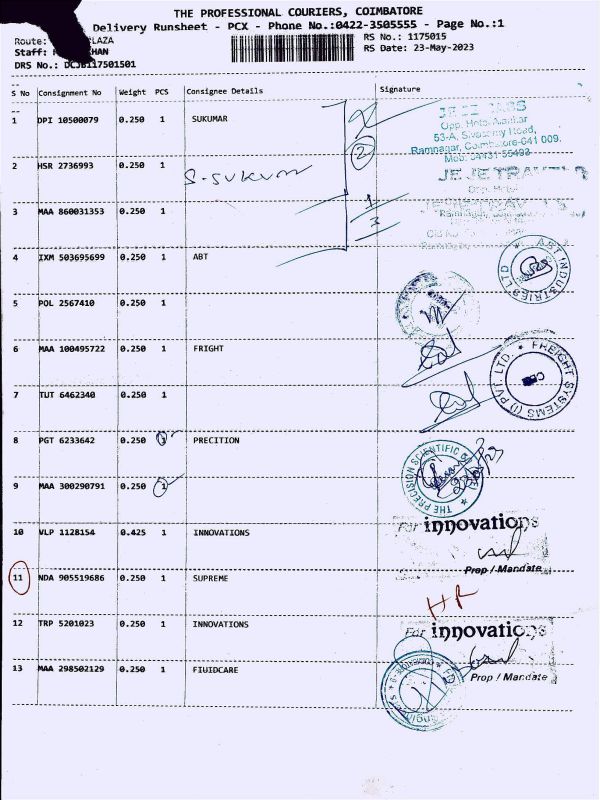 THE PROFESSIONAL COURIERS, COIMBATORE
Delivery Runsheet - PCX - Phone No.:0422-3505555 - Page No.:1
Route: PLAZA
RS No.: 1175015
Staff: KHAN
RS Date: 23-May-2023
DRS No.: DCJB117501501
S No Consignment No Weight PCS Consignee Details Signature
1 DPI 10500079 0.250 1 SUKUMAR
53-A, Sivasamy Road,
Ramnagar, Coimbatore-641 009.
2 HSR 2736993 0.250 1
S. SUKUMAR
2
JE JE TRAVELS
Opp. Hotel
3 MAA 860031353 0.250 1
1/3
4 IXM 503695699 0.250 1 ABT
ABT INDUSTRIES LTD
5 POL 2567410 0.250 1
6 MAA 100495722 0.250 1 FRIGHT
FREIGHT SYSTEMS (I) PVT. LTD.
7 TUT 6462340 0.250 1
8 PGT 6233642 0.250 1 PRECITION
THE PRECISION SCIENTIFIC
9 MAA 300290791 0.250
10 VLP 1128154 0.425 1 INNOVATIONS
For innovations
Prop / Mandate
11 NDA 905519686 0.250 1 SUPREME
HR
12 TRP 5201023 0.250 1 INNOVATIONS
For innovations
Prop / Mandate
13 MAA 298502129 0.250 1 FIUIDCARE